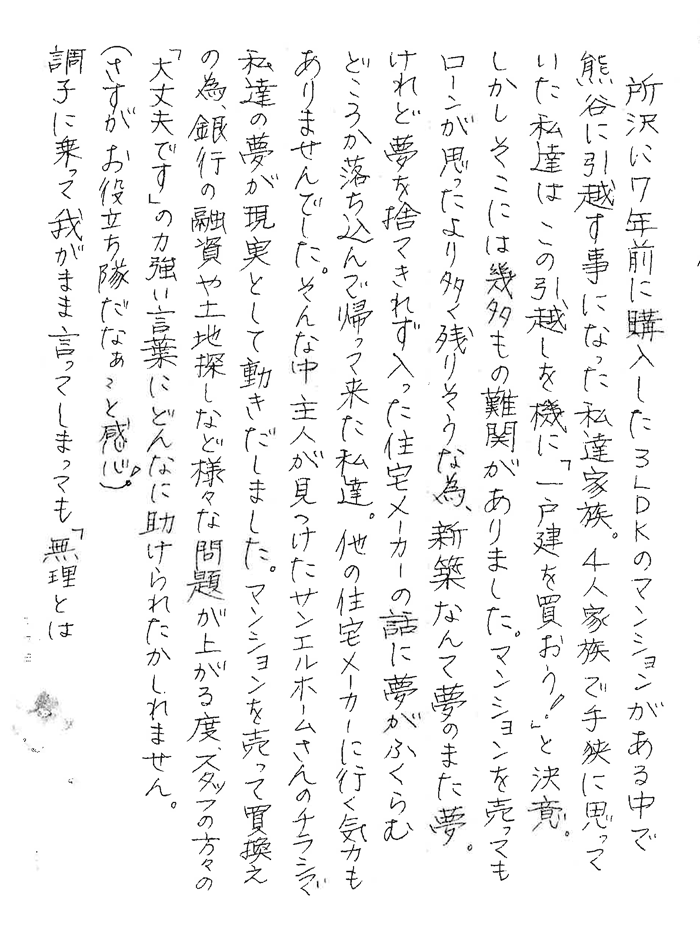 所沢に7年前に購入した3LDKのマンションがある中で
熊谷に引越す事になった私達家族。4人家族で手狭に思って
いた私達はこの引越しを機に「一戸建を買おう!」と決意。
しかしそこには幾多もの難関がありました。マンションを売っても
ローンが思ったより多く残りそうな為、新築なんて夢のまた夢。
けれど夢を捨てきれず入った住宅メーカーの話に夢がふくらむ
どころか落ち込んで帰って来た私達。他の住宅メーカーに行く気力も
ありませんでした。そんな中主人が見つけたサンエルホームさんのチラシで
私達の夢が現実として動きだしました。マンションを売って買換え
の為、銀行の融資や土地探しなど様々な問題が上がる度、スタッフの方々の
「大丈夫です」の力強い言葉にどんなに助けられたかしれません。
(さすがお役立ち隊だなぁ〜と感心!)
調子に乗って我がまま言ってしまっても「無理とは